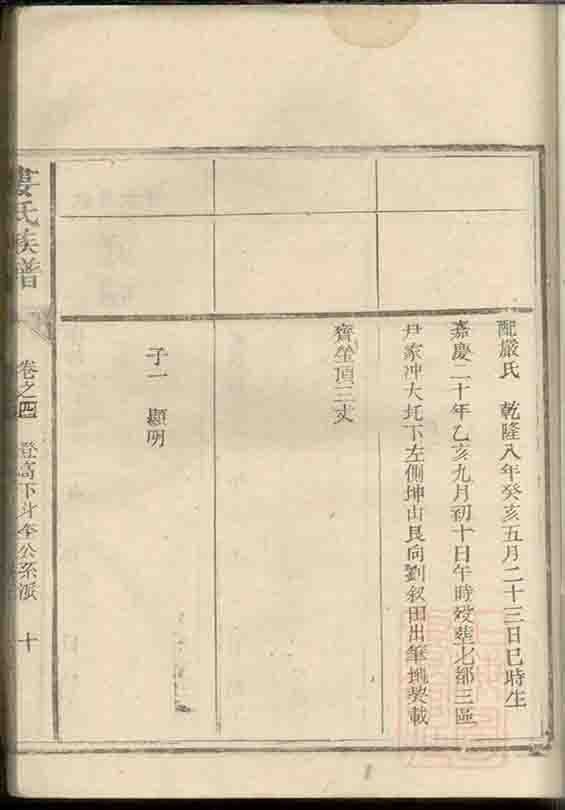 配嚴氏 乾隆八年癸亥五月二十三日巳時生
嘉慶二十年乙亥九月初十日午時歿葬七都三區
尹家冲大坵下左側坤山艮向劉叙田出筆塊契載
齊塋頂三丈
子一 顯明
婁氏族譜 卷之四 登高下斗奎公系派 十